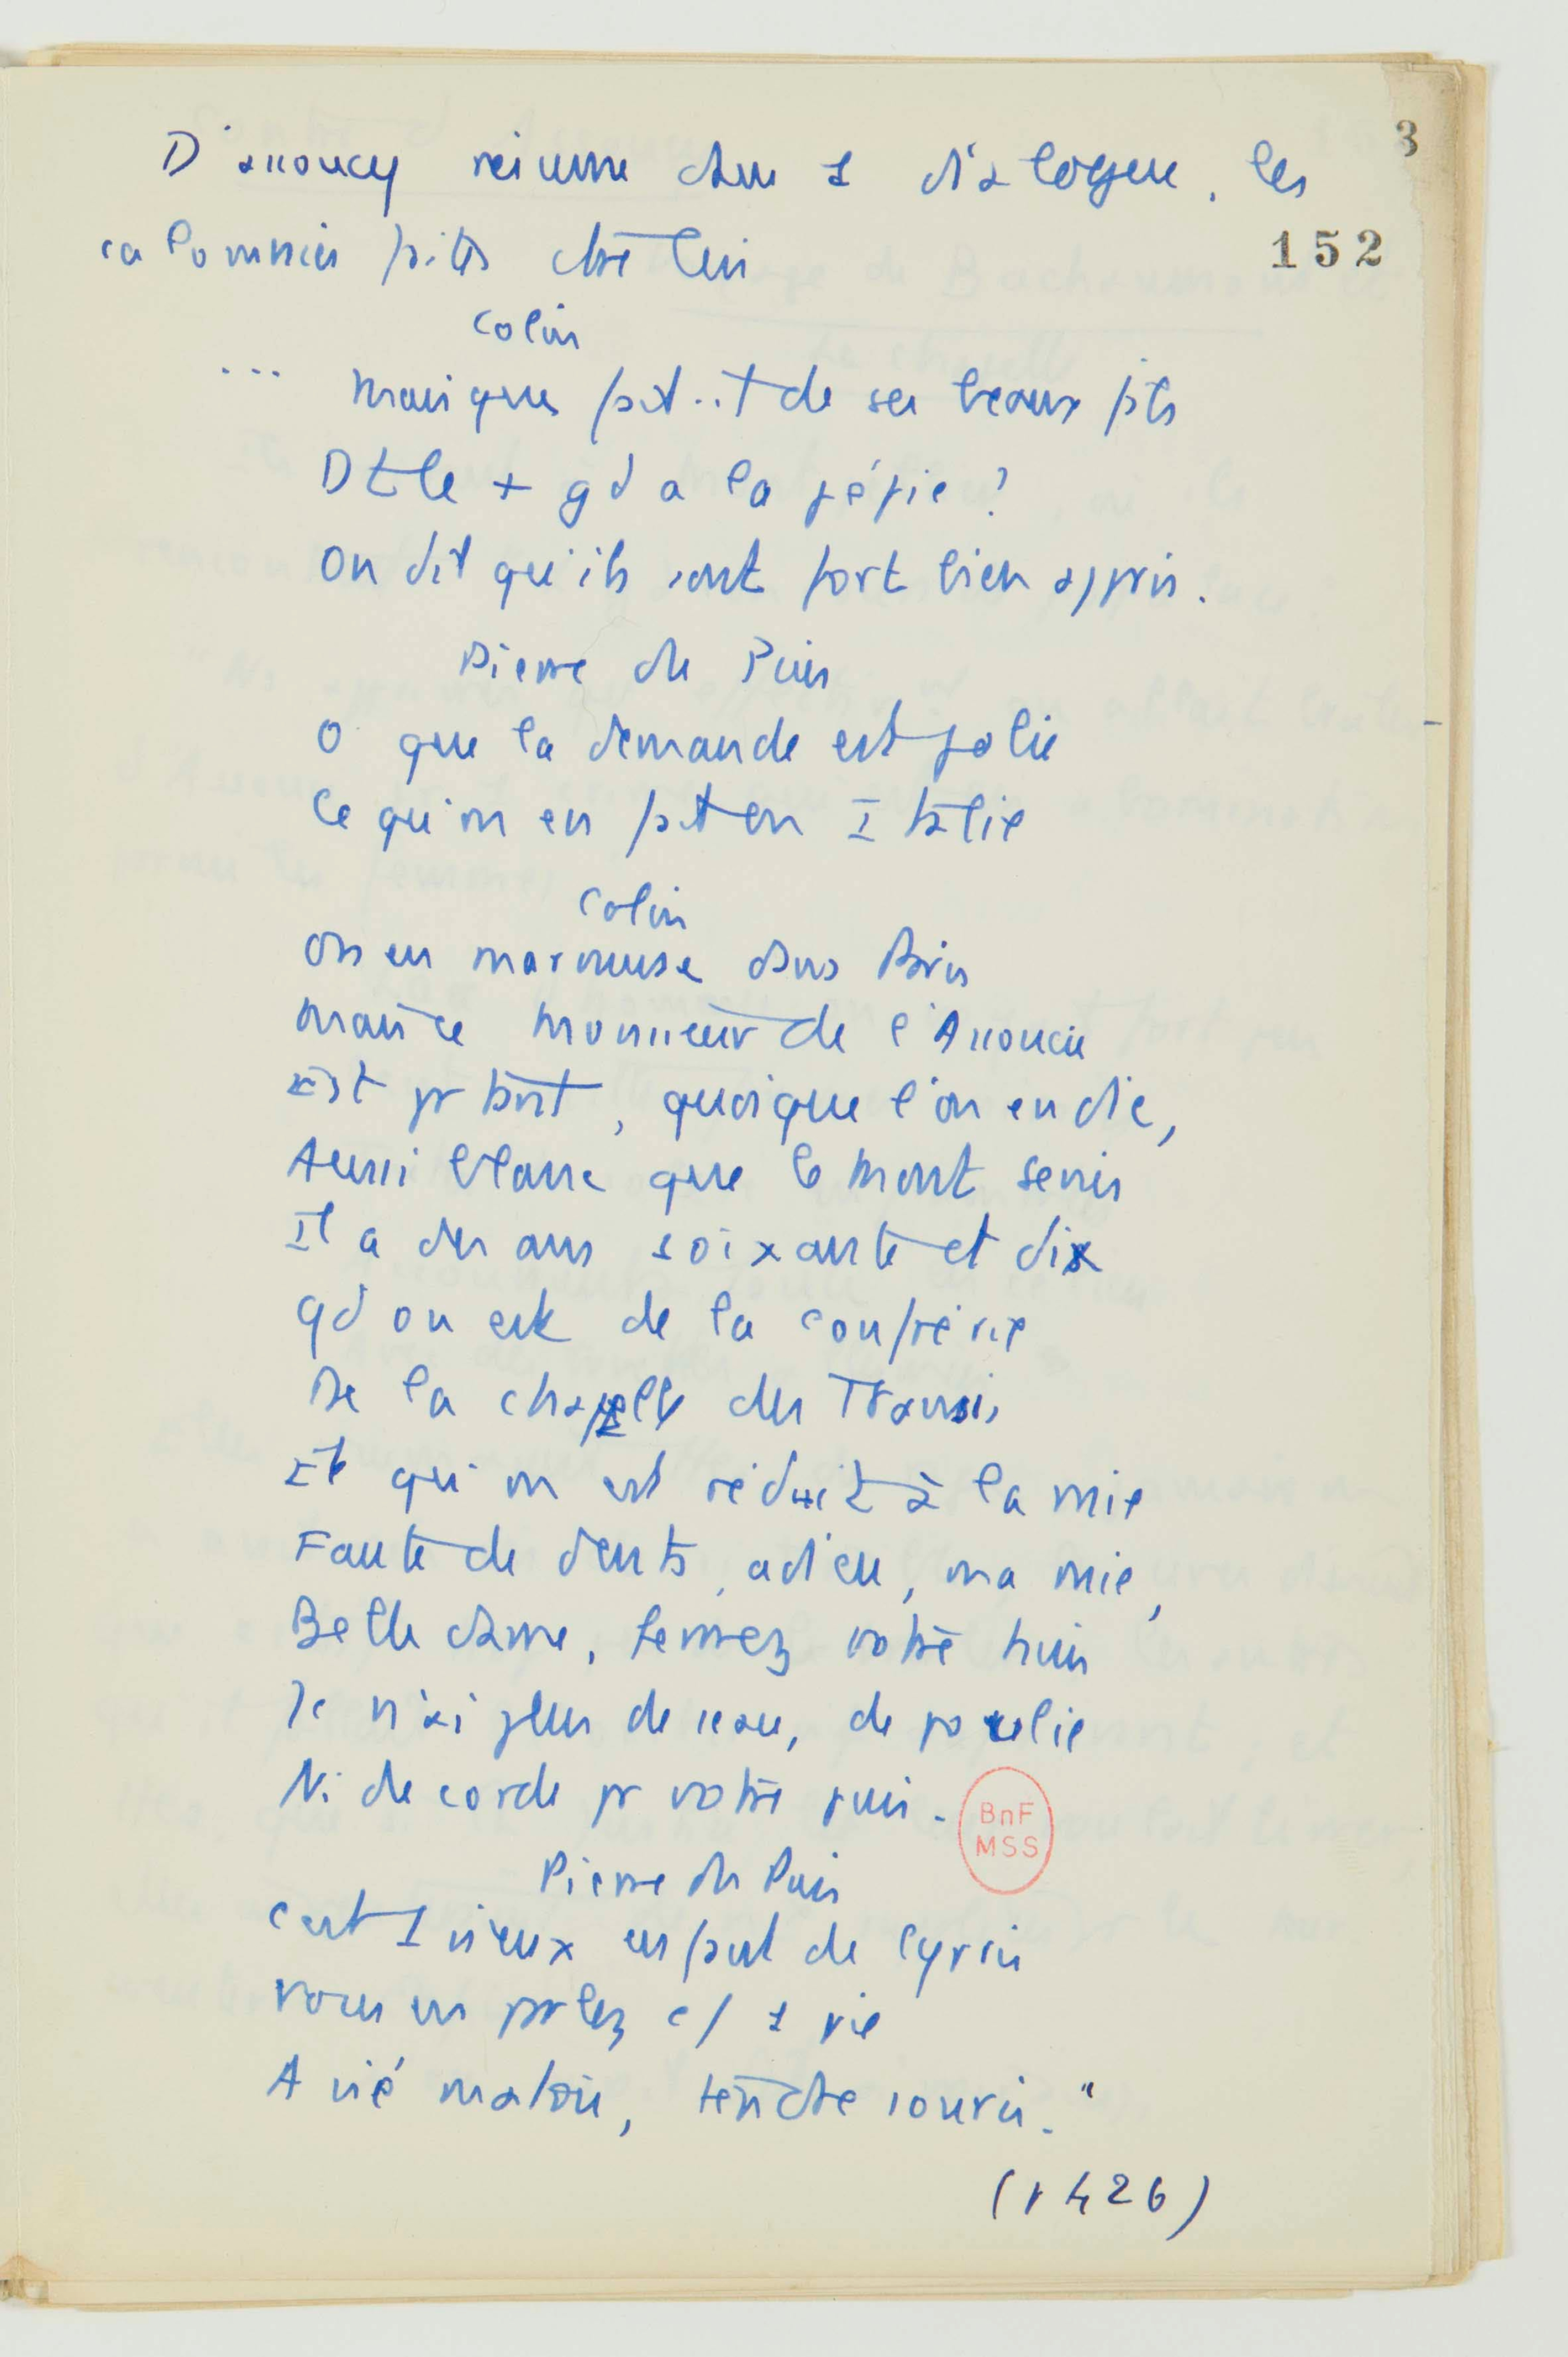 3
D'assoucy résume dans 1 dialogue, les
152
calomnies faites ctre lui
Colin
... Mais que fait-il de ses beaux fils
Dt le + gd a la pépie ?
On dit qu'ils sont fort bien appris.
Pierre du Puis
O que la demande est jolie
Ce qu'on en fait en Italie
Colin
On en marmuse dans Paris
Mais ce Monsieur de l'Assoucie
Est pr tant, quoique l'on en die,
Aussi blanc que le Mont Senis
Il a des ans soixante et dix
qd on est de la confrérie
De la chapelle des Transis
Et qu'on est réduit à la mie
Faute de dents, adieu, ma mie,
Belle dame, fermez votre huis
Je n'ai plus de seau, de poulie
Ni de corde pr votre puis.
BnF
MSS
Pierre du Puis
C'est 1 vieux enfant de Cypris
Vous en parlez c/ 1 pie
A vié matou, tendre souris."
(1426)